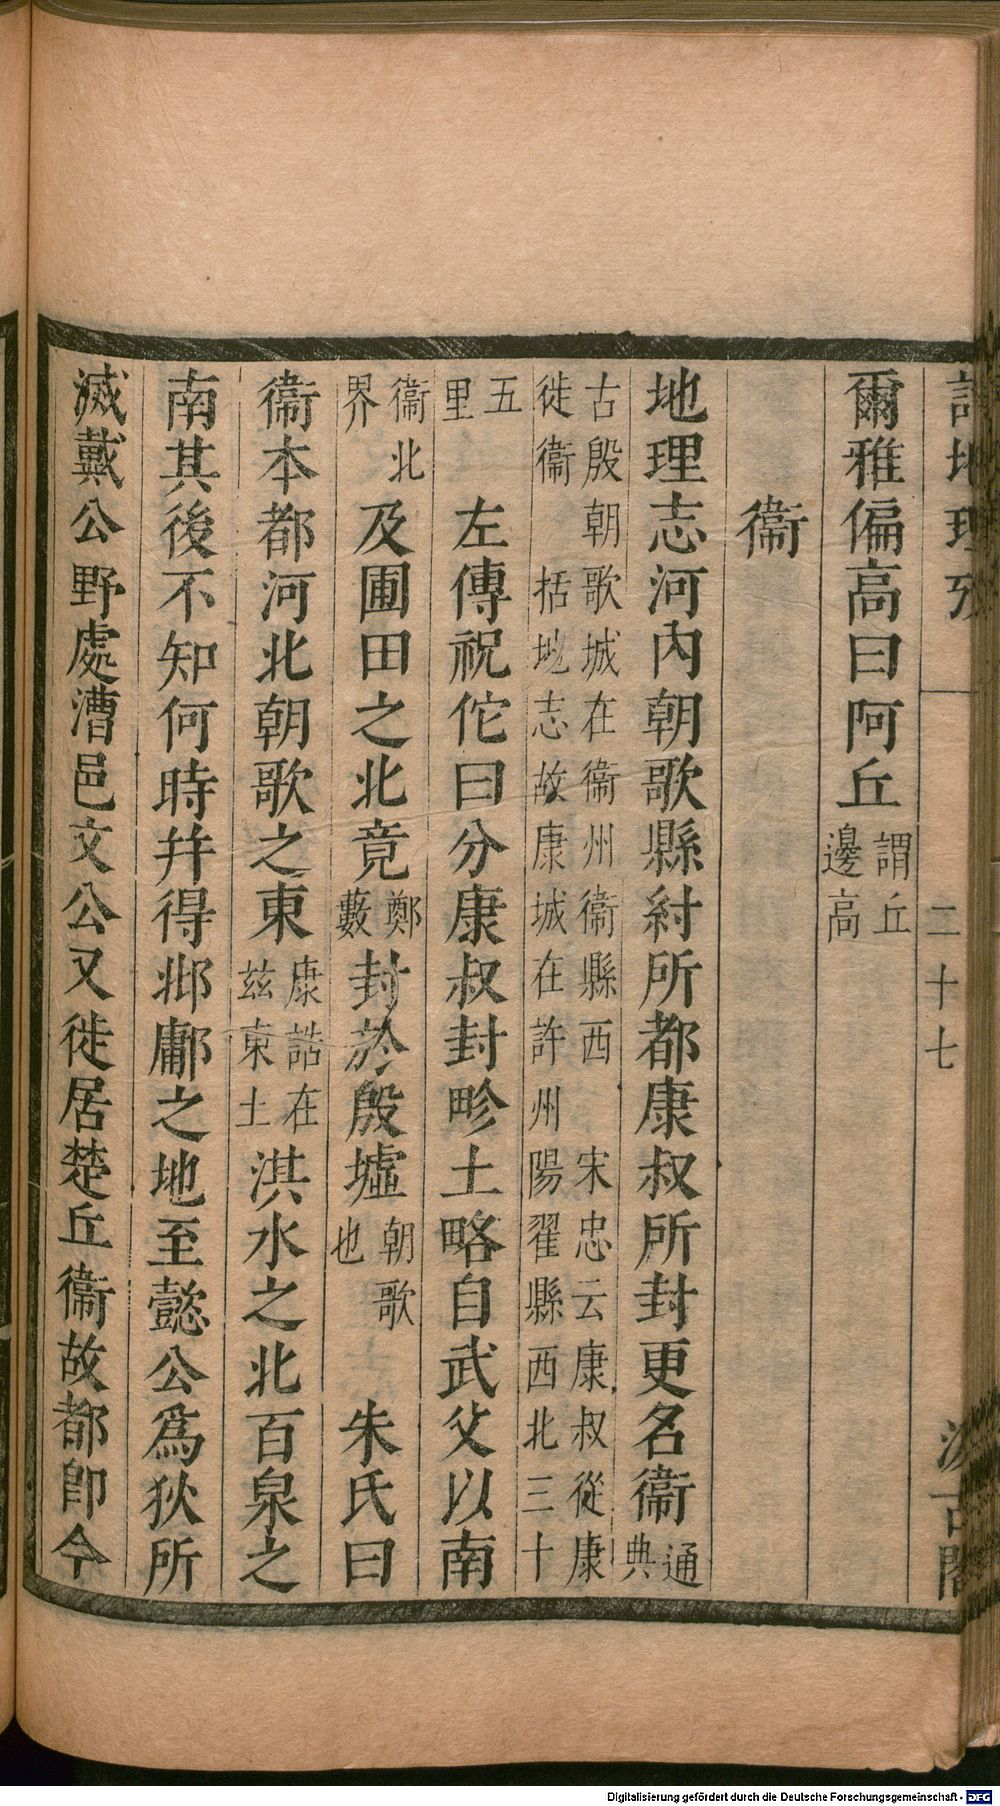 詩地理攷
二十七
汲古閣
爾雅偏高曰阿丘謂丘邊高
衞
地理志河內朝歌縣紂所都康叔所封更名衞通典
古殷朝歌城在衞州衞縣西 宋忠云康叔從康
徙衞 括地志故康城在許州陽翟縣西北三十
五里 左傳祝佗曰分康叔封畛土略自武父以南
衞北界 及圃田之北竟鄭藪封於殷墟朝歌也 朱氏曰
衞本都河北朝歌之東康誥在茲東土淇水之北百泉之
南其後不知何時幷得邶鄘之地至懿公爲狄所
滅戴公野處漕邑文公又徙居楚丘衞故都卽今
Digitalisierung gefördert durch die Deutsche Forschungsgemeinschaft - DFG